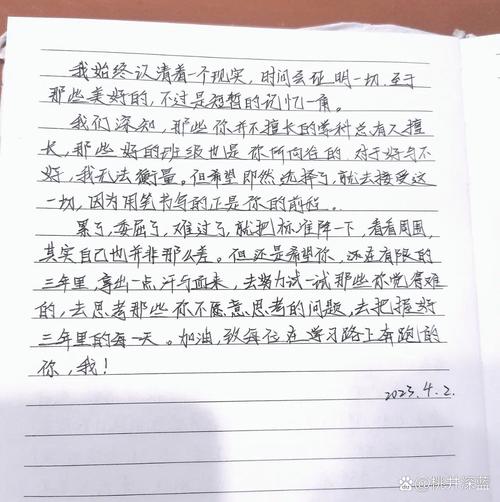 我始终认清着一个现实，时间会证明一切.至于
那些美好的，不过是短暂的记忆一角。
我们深知，那些你并不擅长的学科总有人擅
长，那些好的班级也是你所向往的.对于好与不
好，我无法衡量。但希望即然选择了，就去接受这
一切，因为用笔书写的正是你的前程..
累了，委屈了，难过了，就把标准降一下，看看周围，
其实自己也并非那么差。但还是希望你，还在有限的
三年里，拿出一点汗与血来，去努力试一试那些你觉得难
的，去思考那些你不愿意思考的问题，去把握好
三年里的每一天。加油，致每位在学习路上奔跑的
你，我！
2023.4.2.
桃井深蓝